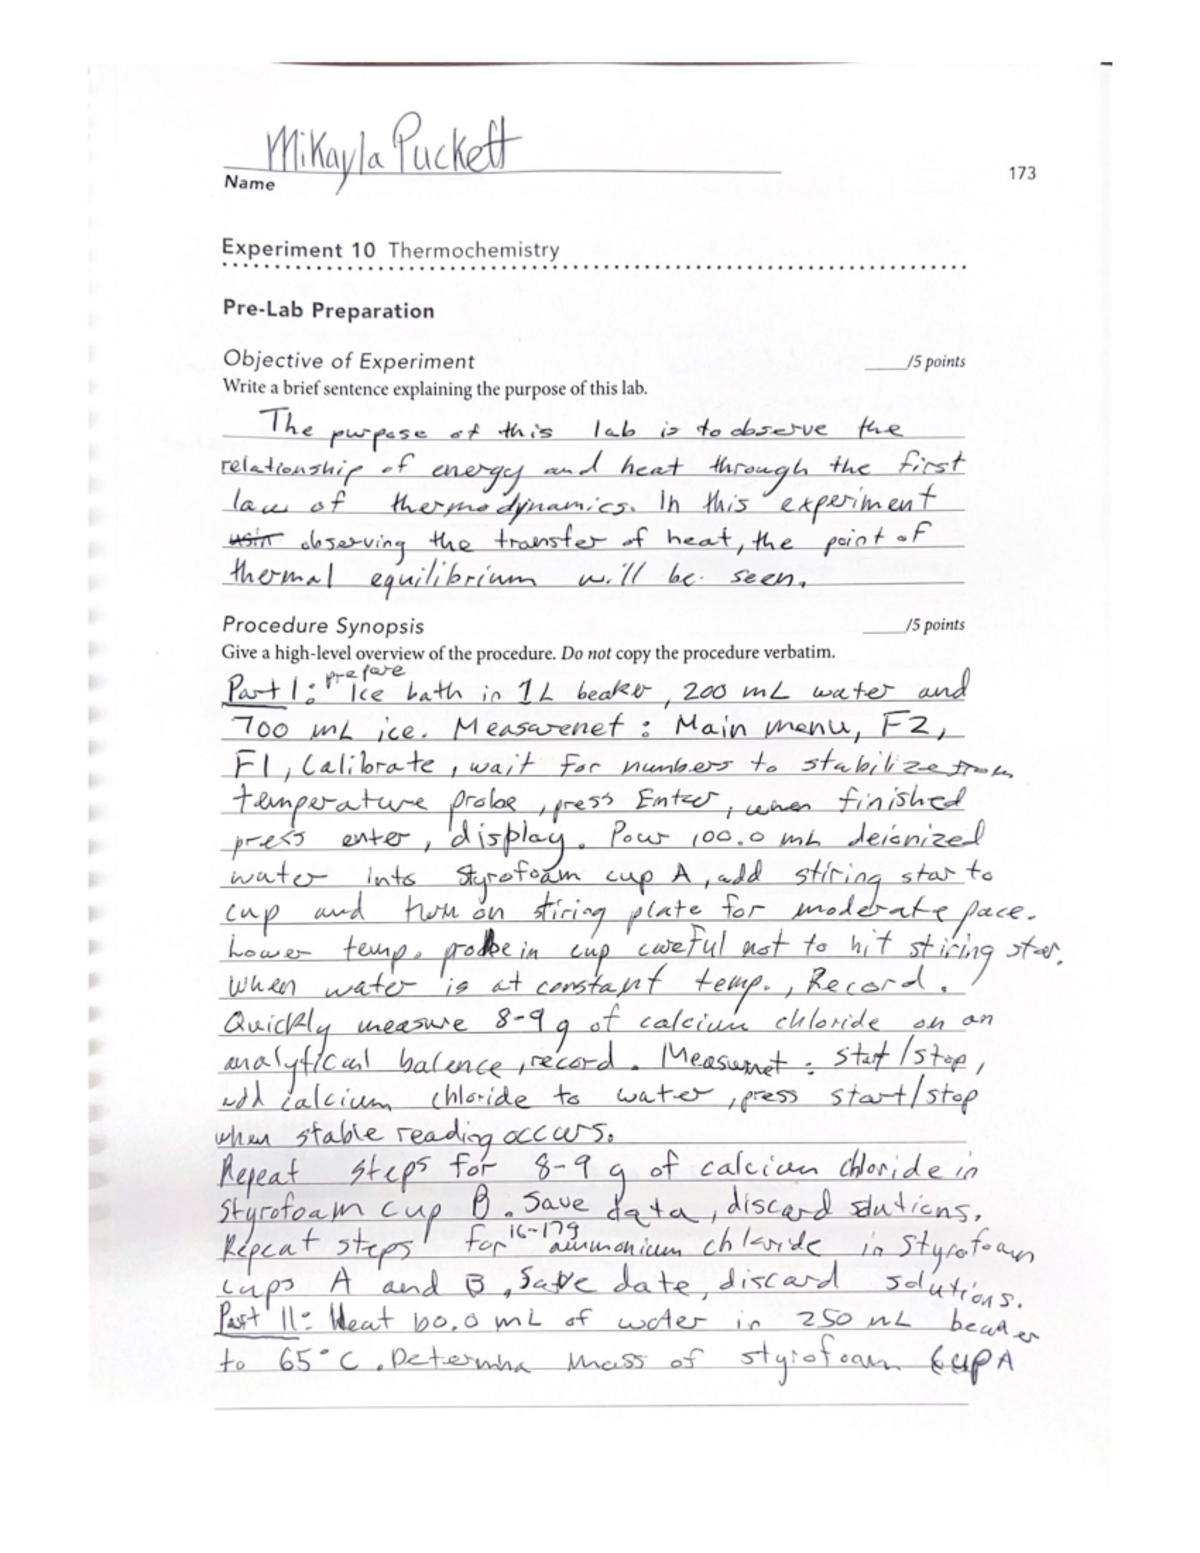 Mikayla Puckett
Name
173
Experiment 10 Thermochemistry
Pre-Lab Preparation
Objective of Experiment
____/5 points
Write a brief sentence explaining the purpose of this lab.
The purpose of this lab is to observe the
relationship of energy and heat through the first
law of thermodynamics. In this experiment
usin observing the transfer of heat, the point of
thermal equilibrium will be seen.
Procedure Synopsis
____/5 points
Give a high-level overview of the procedure. Do not copy the procedure verbatim.
Part 1: prepare Ice bath in 1L beaker, 200 mL water and
700 mL ice. Measurenet: Main menu, F2,
F1, Calibrate, wait for numbers to stabilize from
temperature probe, press Enter, when finished
press enter, display. Pour 100.0 mL deionized
water into Styrofoam cup A, add stiring star to
cup and turn on stiring plate for moderate pace.
Lower temp. probe in cup careful not to hit stiring star.
When water is at constant temp., Record.
Quickly measure 8-9 g of calcium chloride on an
analytical balence, record. Measurnet: start/stop,
add calcium chloride to water, press start/stop
when stable reading occurs.
Repeat steps for 8-9 g of calcium chloride in
Styrofoam cup B. Save data, discard solutions.
Repeat steps for 16-17g ammonium chloride in Styrofoam
cups A and B. Save date, discard solutions.
Part 11: Heat 60.0 mL of water in 250 mL beaker
to 65°C. Determine mass of styrofoam cup A